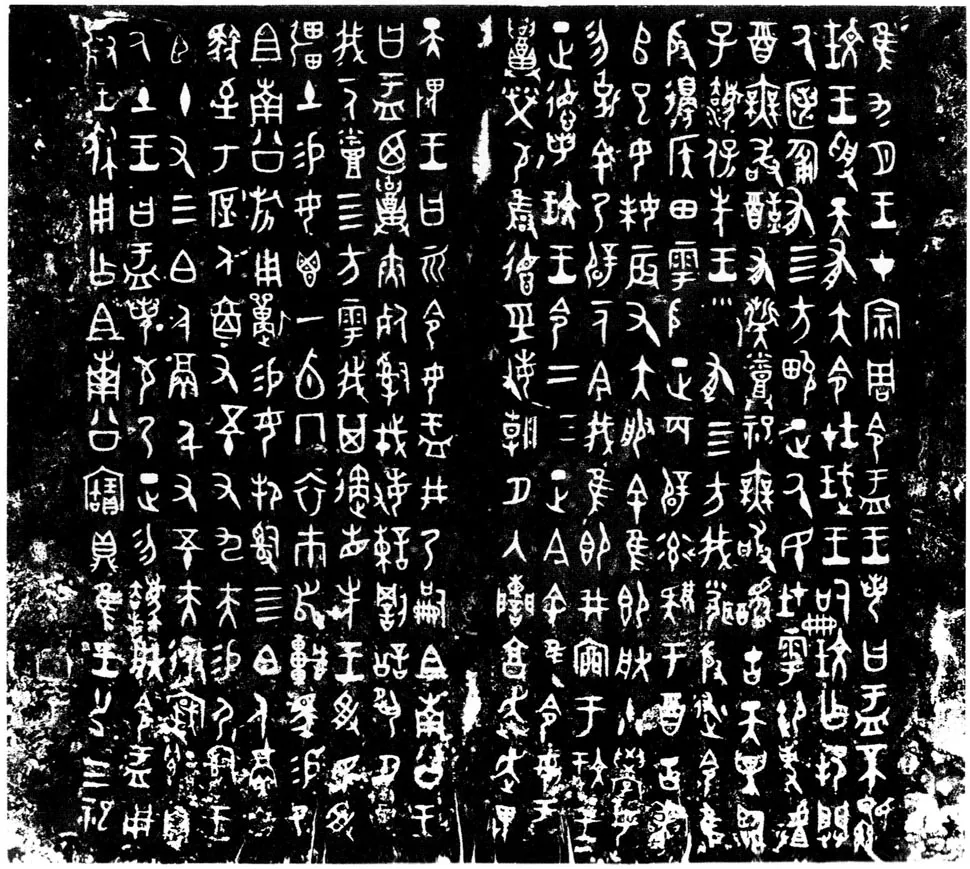 隹九月王才宗周令盂王若曰盂不顯
玟王受天有大令在珷王嗣玟乍邦闢
厥匿匍有四方畯正厥民在雩御事𠭯
酉無敢酖有髭烝祀無敢擾古天異臨
子灋保先王有四方我聞殷述令隹
殷邊侯田雩殷正百辟率肄于酉古喪
𠂤巳女妹辰又大服余隹即朕小學女
勿余乃辟一人今我隹即井㐭于玟王
正德若玟王令二三正今余隹令女盂
召榮敬雍德經敏朝夕入讕享奔走畏
天畏王曰而令女盂井乃嗣且南公王
曰盂乃召夾死司戎敏諫罰訟夙夕召
我一人烝四方雩我其遹省先王受民受
疆土易女鬯一卣冂衣巿舄車馬易乃
且南公旂用狩易女邦司四白人鬲自
馭至于庶人六百又五十又九夫易尸司王
臣十又三白人鬲千又五十夫遷自
厥土王曰盂若敬乃正勿灋朕令盂用
對王休用乍且南公寶鼎隹王廿又三祀